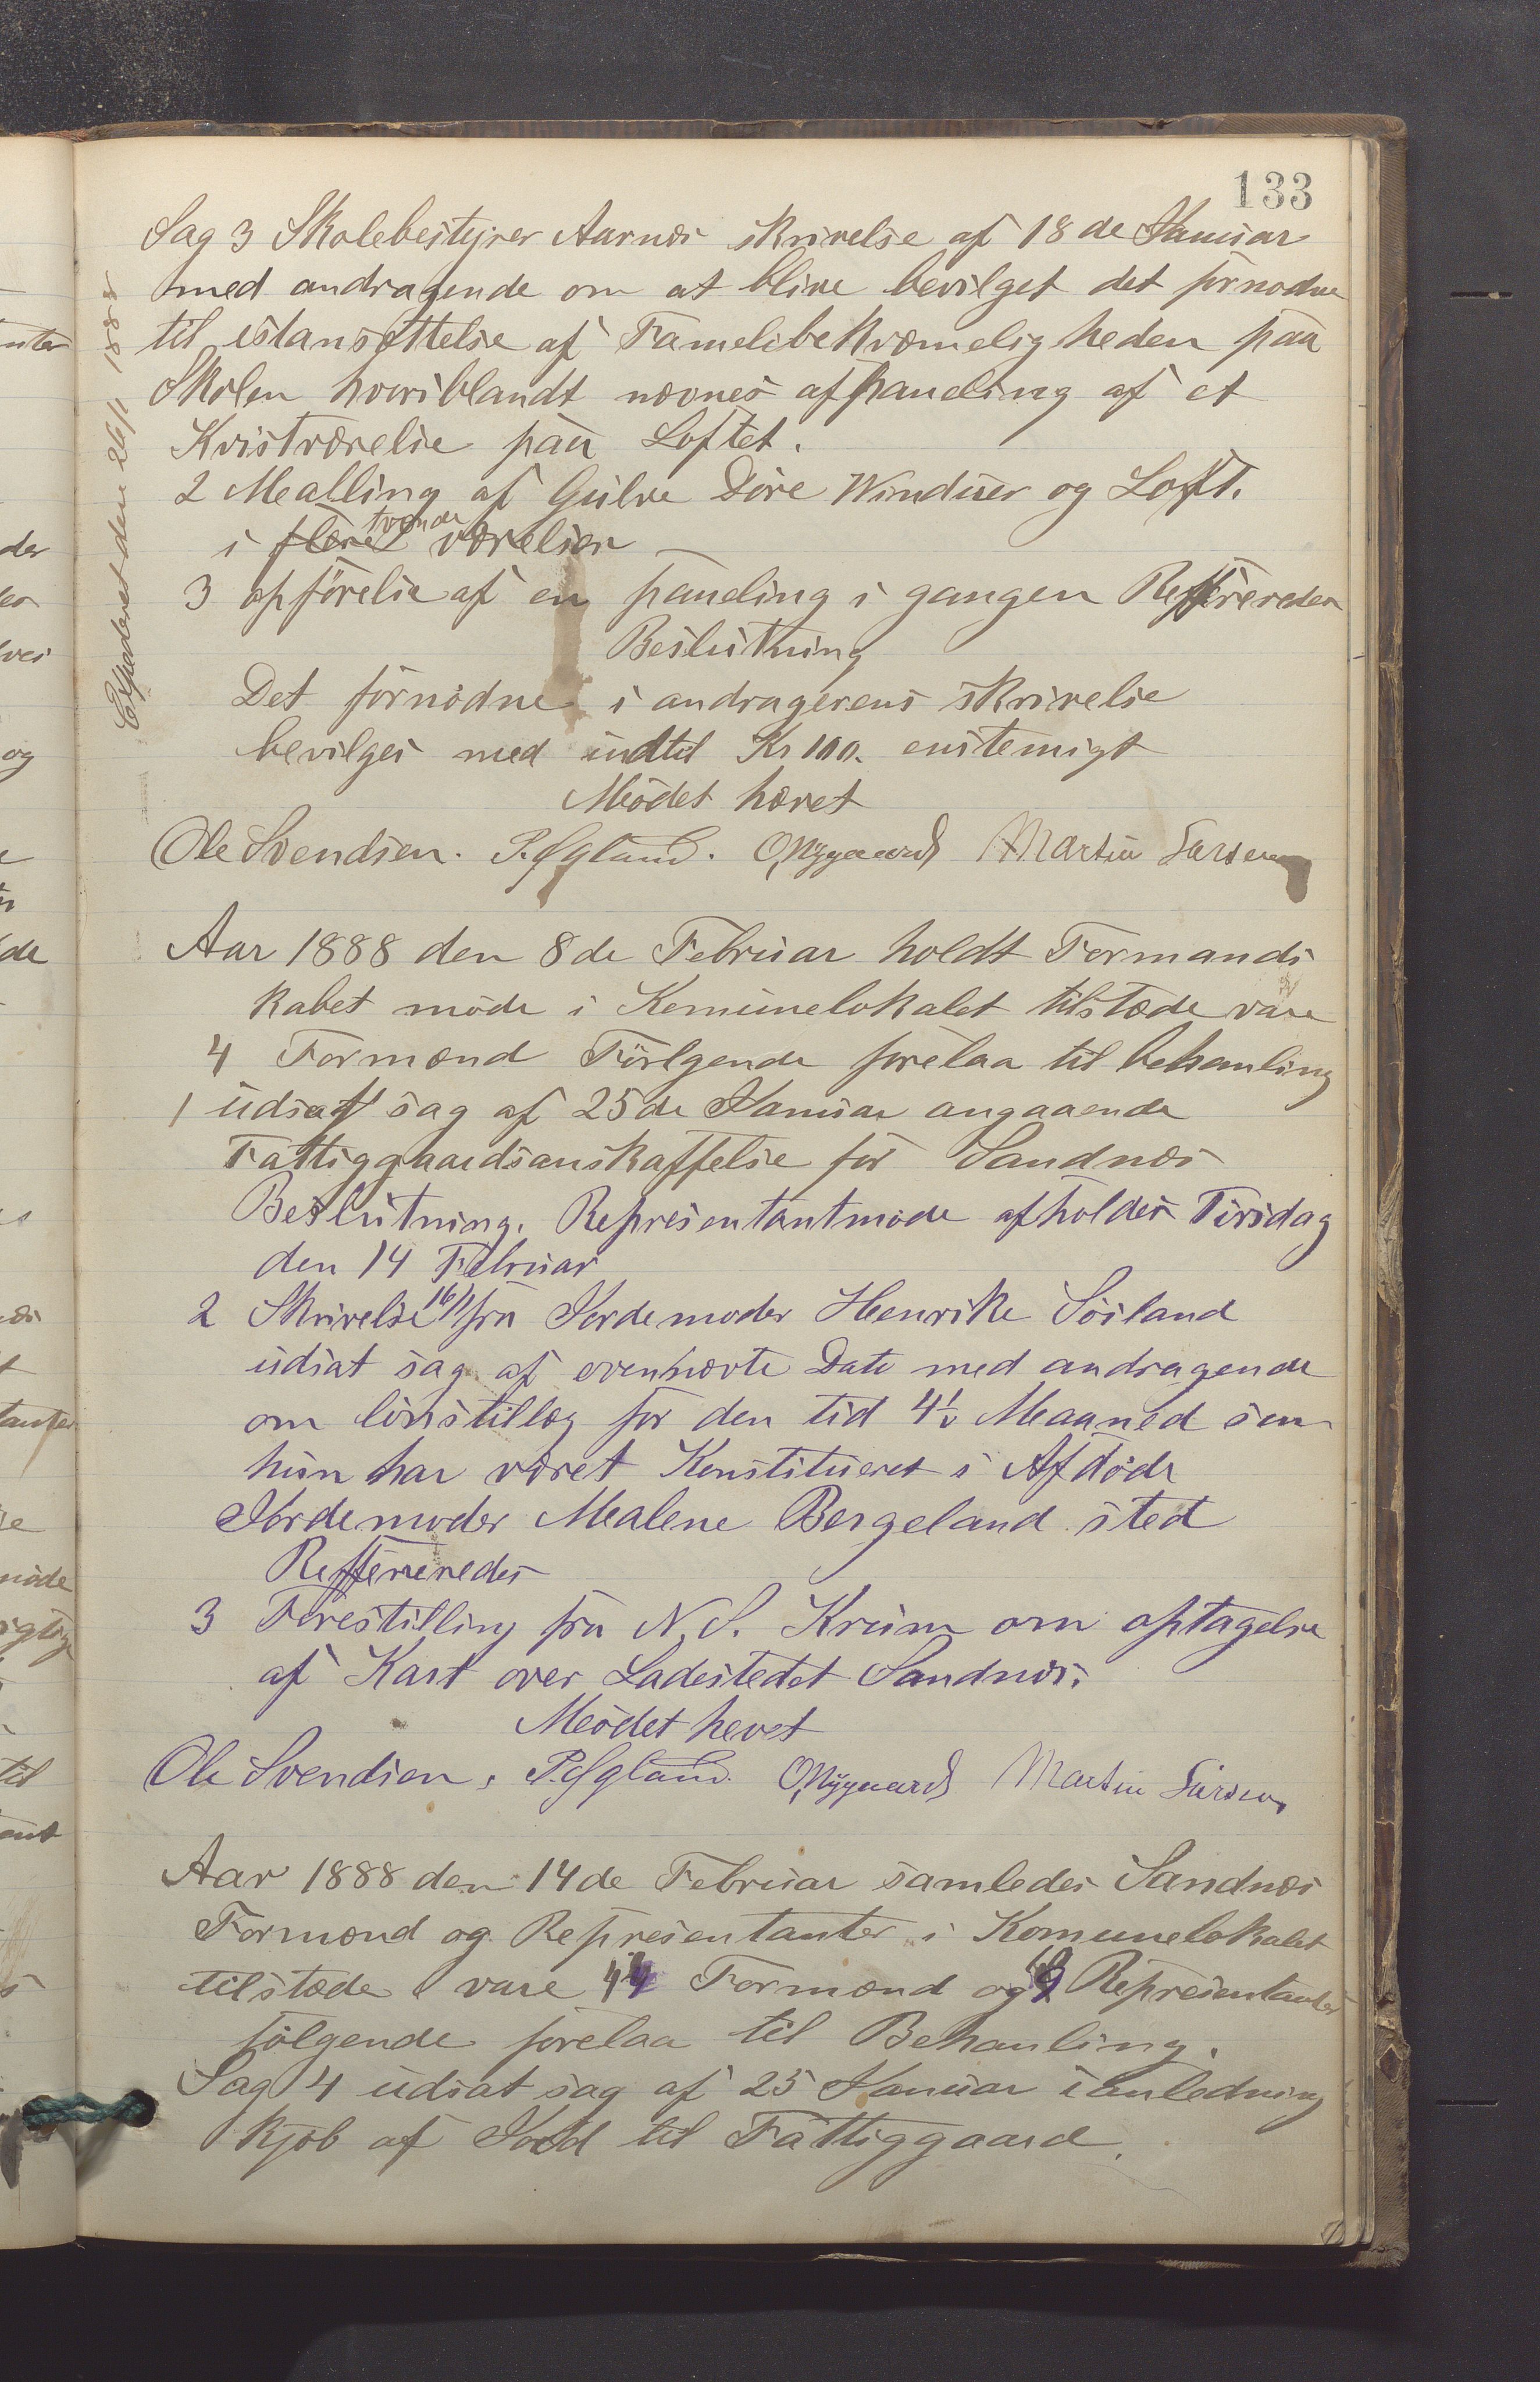 133
Sag 3 Skolebestyrer Aarnes skrivelse af 18de Januar
med andragende om at blive bevilget det fornødne
til istansættelse af Famelibekvæmeligheden paa
Skolen hvoriblandt nævnes afpaneling af et
Kvistværelse paa Loftet.
2 Mealling af Gulve Döre Winduer og Loft.
i flere tvende værelser
3 opförelse af en paneling i gangen Reffereredes
Beslutning
Det fornødne i andragerens skrivelse
bevilges med indtil Kr 100. enstemigt
Mödet hævet
Ole Svendsen. P. Egland. O Nygaard Martin Larsen
Expederet den 26/1 1888
Aar 1888 den 8de Februar holdt Formands
kabet möde i Komunelokalet tilstæde vare
4 Formænd Fölgende forelaa til behanling
1 udsat sag af 25de Januar angaaende
Fattiggaardsanskaffelse for Sandnæs
Beslutning. Represientantmöde afholdes Tirsdag
den 14 Februar
2 Skrivelse 16/1 fra Jordemoder Henrike Soiland
udsat sag af ovennævte Dato med andragende
om lönstillæg for den tid 4½ Meaaned som
hun har været Konstitueret i Afdöde
Jordemoder Mealene Bergeland sted
Reffereredes
3 Forestilling fra N. S. Krum om optagelse
af Kart over Ladestedet Sandnæs.
Mödet hevet
Ole Svendsen, P. Egland. O Nygaard Martin Larsen
Aar 1888 den 14de Februar samledes Sandnæs
Formænd og Represientanter i Komunelokalet
tilstæde vare 4 Formænd og 9 Represientanter
fölgende forelaa til Behanling.
Sag 4 udsat sag af 25 Januar i anledning
kjöb af Jord til Fattiggaard.